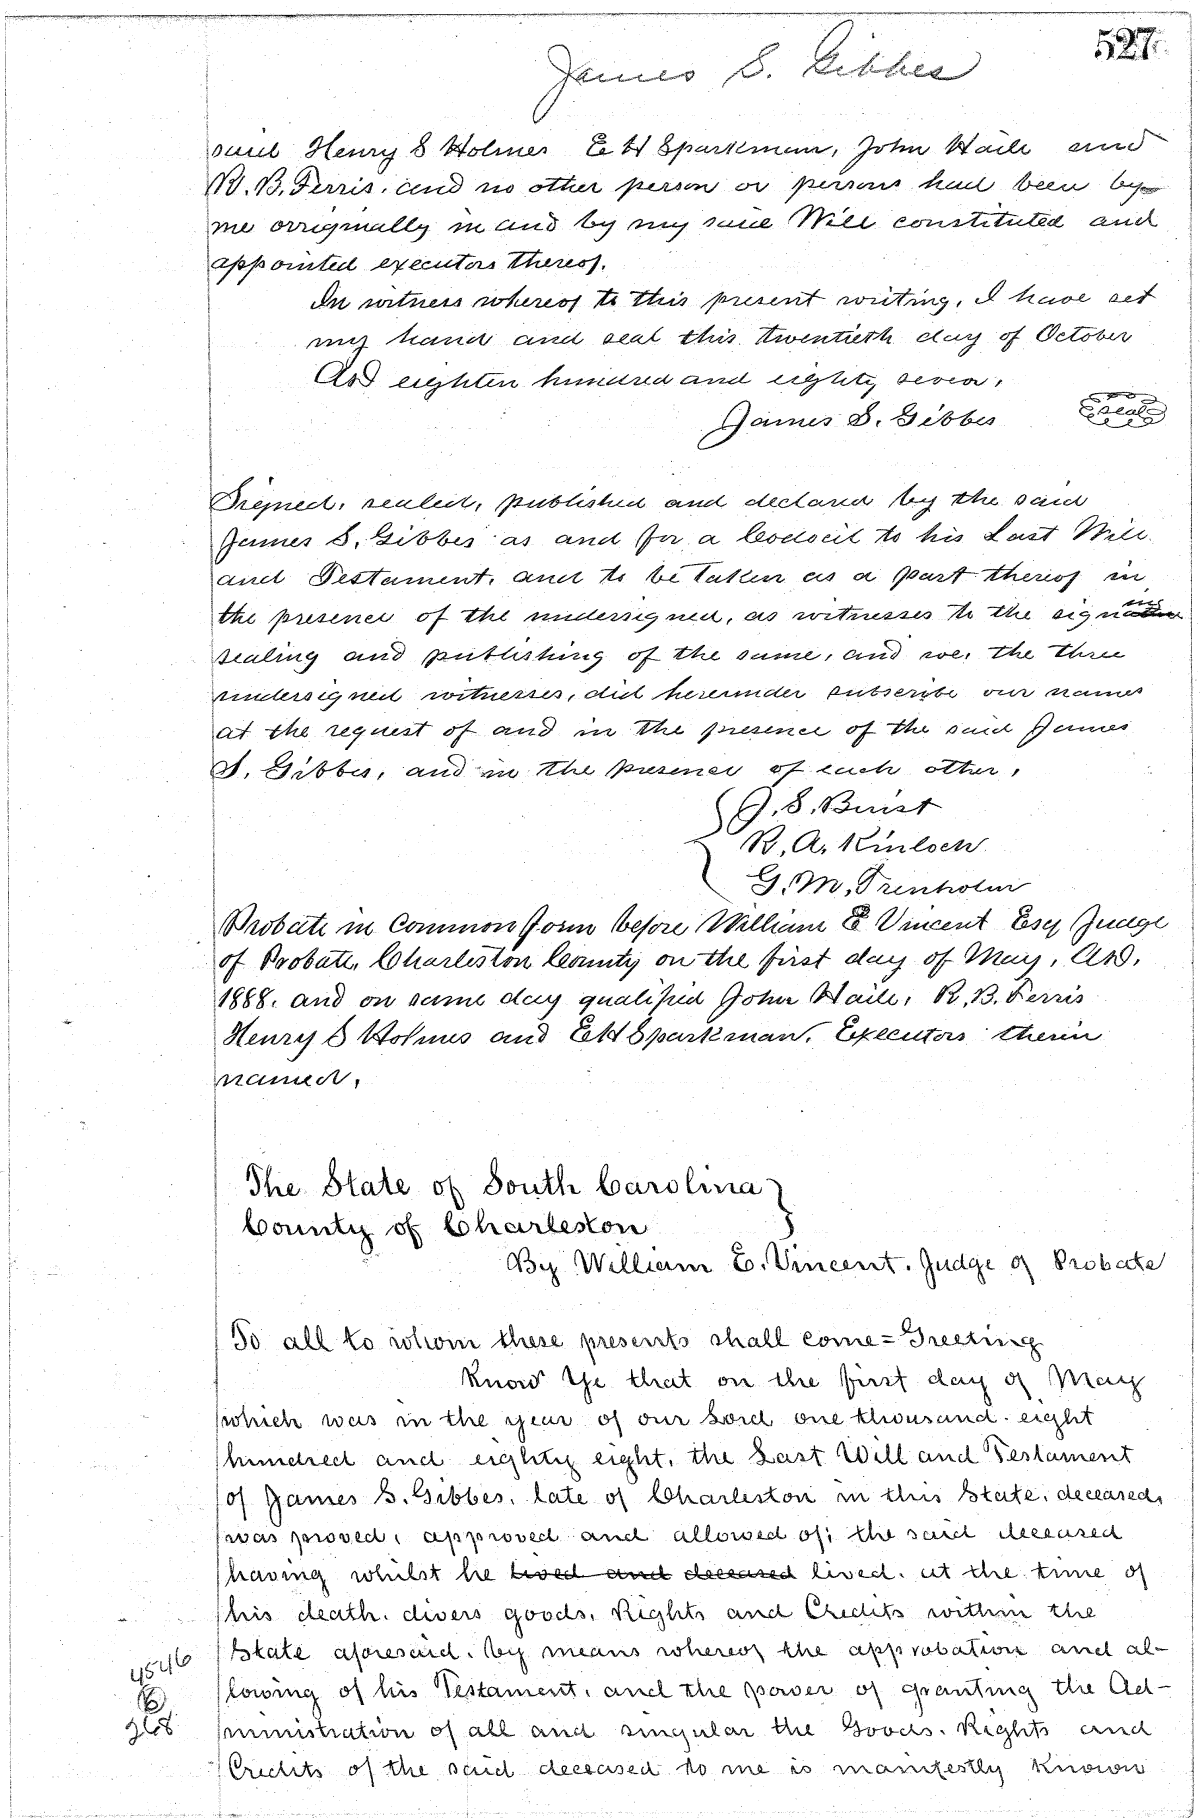 527
James S. Gibbes
said Henry S Holmes E H Sparkman, John Haile and
R. B. Ferris, and no other person or persons had been by
me orriginally in and by my said Will constituted and
appointed executors thereof.
In witness whereof to this present writing, I have set
my hand and seal this twentieth day of October
AD eighten hundred and eighty seven,
James S. Gibbes seal
Signed, sealed, published and declared by the said
James S. Gibbes as and for a Codocil to his Last Will
and Testament, and to be taken as a part thereof in
ing
the presence of the undersigned, as witnesses to the signature
sealing and publishing of the same, and we, the three
undersigned witnesses, did hereunder subscribe our names
at the request of and in the presence of the said James
S. Gibbes, and in the presence of each other,
J. S. Buist
R. A. Kinloch
G. M. Trenholm
Probate in Common form before William E Vincent Esq Judge
of Probate, Charleston County on the first day of May, AD,
1888. and on same day qualified John Haile, R. B. Ferris
Henry S Holmes and E H Sparkman, Executors therein
named,
The State of South Carolina
County of Charleston
By William E. Vincent. Judge of Probate
To all to whom these presents shall come = Greeting
Know Ye that on the first day of May
which was in the year of our Lord one thousand eight
hundred and eighty eight, the Last Will and Testament
of James S. Gibbes, late of Charleston in this State, deceased,
was proved, approved and allowed of; the said deceased
having whilst he lived and deceased lived, at the time of
his death, divers goods, Rights and Credits within the
State aforesaid, by means whereof the approbation and al-
lowing of his Testament, and the power of granting the Ad-
ministration of all and singular the Goods, Rights and
Credits of the said deceased to me is manifestly known
4546
268